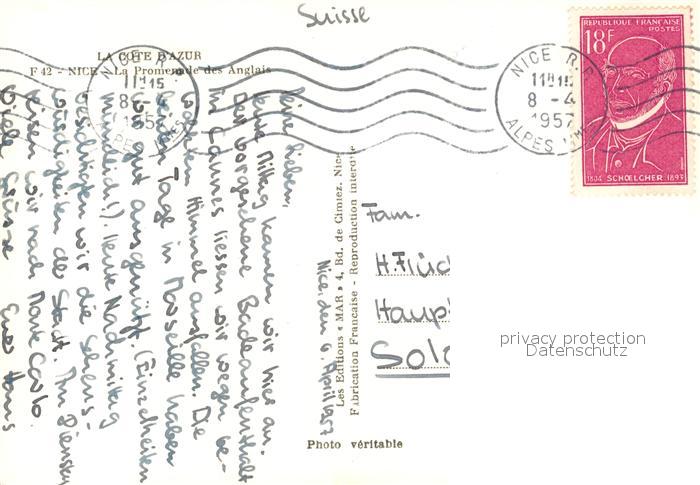 Suisse
LA COTE D'AZUR
F 42 - NICE - La Promenade des Anglais
NICE R.P.
11H15
8 - 4
1957
ALPES MME
NICE R.P.
11H15
8 - 4
1957
ALPES MME
REPUBLIQUE FRANÇAISE
POSTES
18F
1804 SCHŒLCHER 1893
Nice, den 6. April 1957
Meine Lieben,
Heute Mittag kamen wir hier an.
Den vorgesehene Badeaufenthalt
in Cannes liessen wir wegen be-
wölktem Himmel ausfallen. Die
beiden Tage in Marseille haben
wir gut ausgenützt. (Einzelheiten
mündlich!). Heute Nachmittag
besichtigen wir die Sehens-
würdigkeiten der Stadt. Am Dienstag
reisen wir nach Monte Carlo.
Viele Grüsse Euer Hans
Les Editions « MAR » 4, Bd. de Cimiez, Nice
Fabrication Française - Reproduction interdite
Fam.
H. Flüc
Haupt
Solo
privacy protection
Datenschutz
Photo véritable